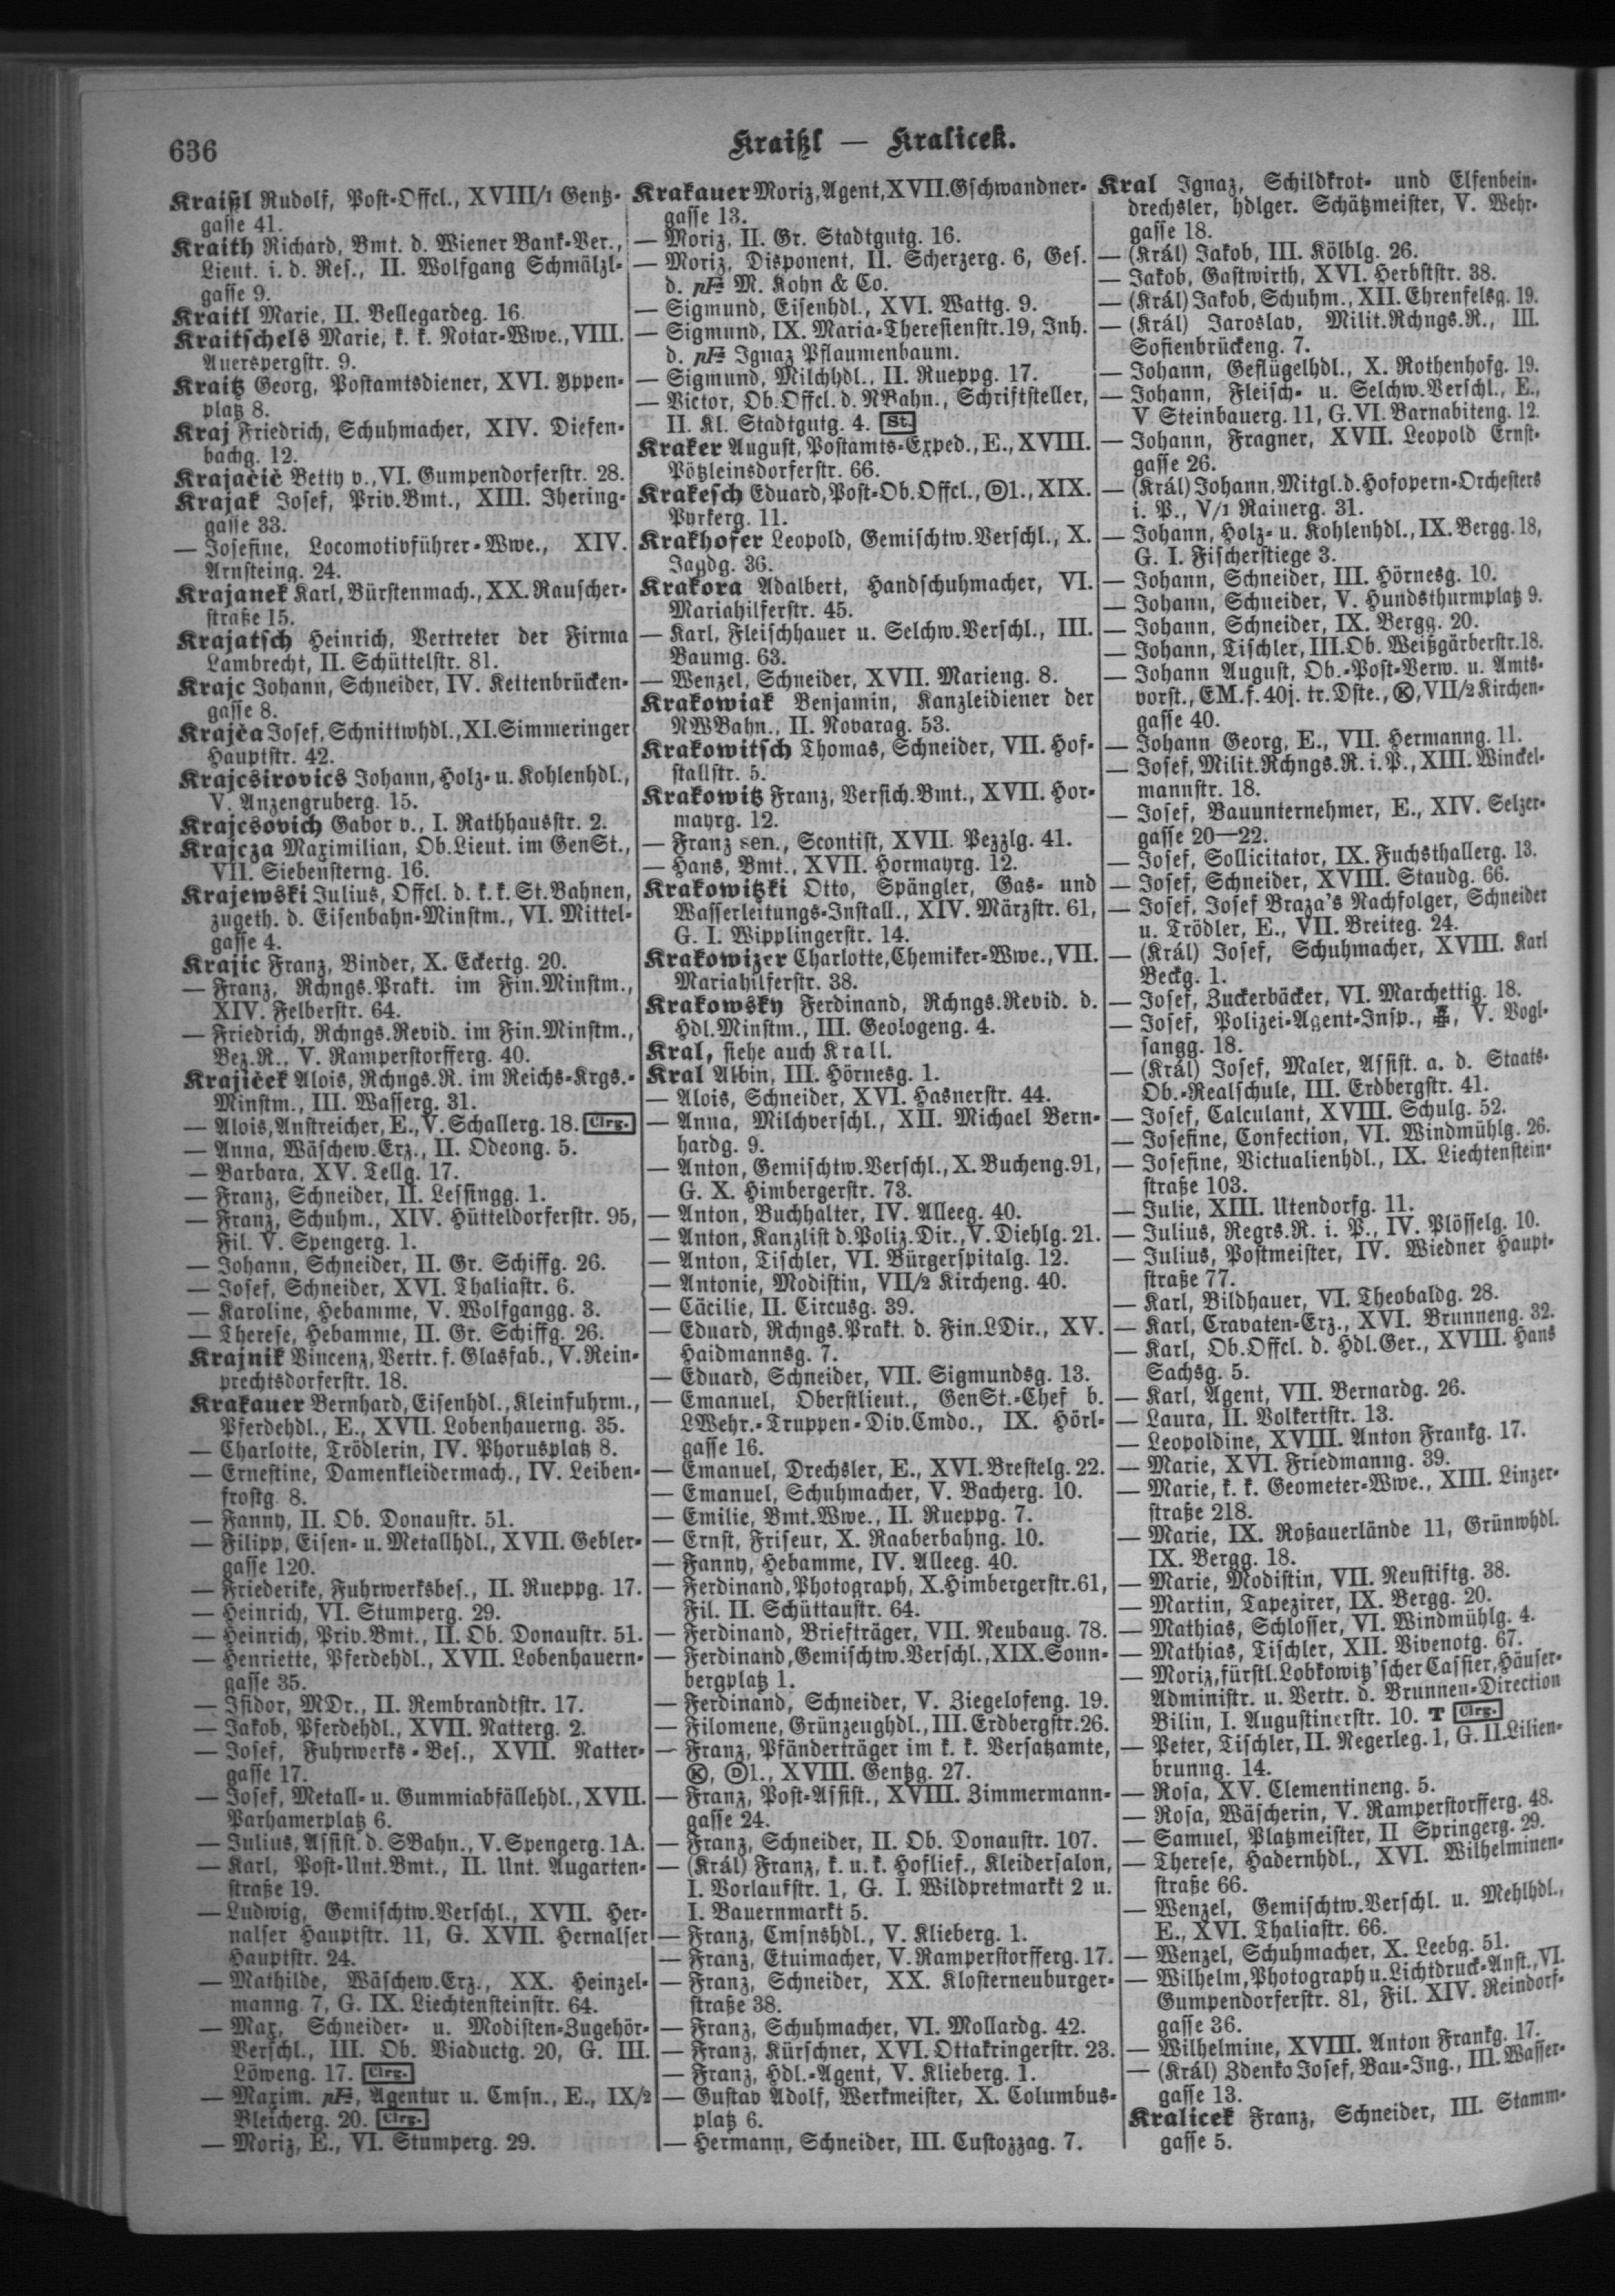 636
Kraißl — Kralicek.
Kraißl Rudolf, Post-Offcl., XVIII/1 Gentz-
gasse 41.
Kraith Richard, Bmt. d. Wiener Bank-Ver.,
Lieut. i. d. Res., II. Wolfgang Schmälzl-
gasse 9.
Kraitl Marie, II. Bellegardeg. 16
Kraitschels Marie, k. k. Notar-Wwe., VIII.
Auerspergstr. 9.
Kraitz Georg, Postamtsdiener, XVI. Yppen-
platz 8.
Kraj Friedrich, Schuhmacher, XIV. Diefen-
bachg. 12.
Krajačič Betty v., VI. Gumpendorferstr. 28.
Krajak Josef, Priv.Bmt., XIII. Jhering-
gasse 33.
— Josefine, Locomotivführer-Wwe., XIV.
Arnsteing. 24.
Krajanek Karl, Bürstenmach., XX. Rauscher-
straße 15.
Krajatsch Heinrich, Vertreter der Firma
Lambrecht, II. Schüttelstr. 81.
Krajc Johann, Schneider, IV. Kettenbrücken-
gasse 8.
Krajča Josef, Schnittwhdl., XI. Simmeringer
Hauptstr. 42.
Krajcsirovics Johann, Holz- u. Kohlenhdl.,
V. Anzengruberg. 15.
Krajcsovich Gabor v., I. Rathhausstr. 2.
Krajcza Maximilian, Ob.Lieut. im GenSt.,
VII. Siebensterng. 16.
Krajewski Julius, Offcl. d. k. k. St.Bahnen,
zugeth. d. Eisenbahn-Minstm., VI. Mittel-
gasse 4.
Krajic Franz, Binder, X. Eckertg. 20.
— Franz, Rchngs.Prakt. im Fin.Minstm.,
XIV. Felberstr. 64.
— Friedrich, Rchngs.Revid. im Fin.Minstm.,
Bez.R., V. Ramperstorfferg. 40.
Krajiček Alois, Rchngs.R. im Reichs-Krgs.-
Minstm., III. Wasserg. 31.
— Alois, Anstreicher, E., V. Schallerg. 18. Clrg.
— Anna, Wäschew.Erz., II. Odeong. 5.
— Barbara, XV. Tellg. 17.
— Franz, Schneider, II. Lessingg. 1.
— Franz, Schuhm., XIV. Hütteldorferstr. 95,
Fil. V. Spengerg. 1.
— Johann, Schneider, II. Gr. Schiffg. 26.
— Josef, Schneider, XVI. Thaliastr. 6.
— Karoline, Hebamme, V. Wolfgangg. 3.
— Therese, Hebamme, II. Gr. Schiffg. 26.
Krajnik Vincenz, Vertr. f. Glasfab., V. Rein-
prechtsdorferstr. 18.
Krakauer Bernhard, Eisenhdl., Kleinfuhrm.,
Pferdehdl., E., XVII. Lobenhauerng. 35.
— Charlotte, Trödlerin, IV. Phorusplatz 8.
— Ernestine, Damenkleidermach., IV. Leiben-
frostg. 8.
— Fanny, II. Ob. Donaustr. 51.
— Filipp, Eisen- u. Metallhdl., XVII. Gebler-
gasse 120.
— Friederike, Fuhrwerksbes., II. Rueppg. 17.
— Heinrich, VI. Stumperg. 29.
— Heinrich, Priv.Bmt., II. Ob. Donaustr. 51.
— Henriette, Pferdehdl., XVII. Lobenhauern-
gasse 35.
— Isidor, MDr., II. Rembrandtstr. 17.
— Jakob, Pferdehdl., XVII. Natterg. 2.
— Josef, Fuhrwerks-Bes., XVII. Natter-
gasse 17.
— Josef, Metall- u. Gummiabfällehdl., XVII.
Parhamerplatz 6.
— Julius, Assist. d. SBahn., V. Spengerg. 1A.
— Karl, Post-Unt.Bmt., II. Unt. Augarten-
straße 19.
— Ludwig, Gemischtw.Verschl., XVII. Her-
nalser Hauptstr. 11, G. XVII. Hernalser
Hauptstr. 24.
— Mathilde, Wäschew.Erz., XX. Heinzel-
manng. 7, G. IX. Liechtensteinstr. 64.
— Max, Schneider- u. Modisten-Zugehör-
Verschl., III. Ob. Viaductg. 20, G. III.
Löweng. 17. Clrg.
— Maxim. pFa, Agentur u. Cmsn., E., IX/2
Bleicherg. 20. Clrg.
— Moriz, E., VI. Stumperg. 29.
Krakauer Moriz, Agent, XVII. Gschwandner-
gasse 13.
— Moriz, II. Gr. Stadtgutg. 16.
— Moriz, Disponent, II. Scherzerg. 6, Ges.
d. pFa M. Kohn & Co.
— Sigmund, Eisenhdl., XVI. Wattg. 9.
— Sigmund, IX. Maria-Theresienstr. 19, Inh.
d. pFa Ignaz Pflaumenbaum.
— Sigmund, Milchhdl., II. Rueppg. 17.
— Victor, Ob.Offcl. d. NBahn., Schriftsteller,
II. Kl. Stadtgutg. 4. St.
Kraker August, Postamts-Exped., E., XVIII.
Pötzleinsdorferstr. 66.
Krakesch Eduard, Post-Ob.Offcl., Ⓓ1., XIX.
Pyrkerg. 11.
Krakhofer Leopold, Gemischtw.Verschl., X.
Jagdg. 36.
Krakora Adalbert, Handschuhmacher, VI.
Mariahilferstr. 45.
— Karl, Fleischhauer u. Selchw.Verschl., III.
Baumg. 63.
— Wenzel, Schneider, XVII. Marieng. 8.
Krakowiak Benjamin, Kanzleidiener der
NWBahn., II. Novarag. 53.
Krakowitsch Thomas, Schneider, VII. Hof-
stallstr. 5.
Krakowitz Franz, Versich.Bmt., XVII. Hor-
mayrg. 12.
— Franz sen., Scontist, XVII. Pezzlg. 41.
— Hans, Bmt., XVII. Hormayrg. 12.
Krakowitzki Otto, Spängler, Gas- und
Wasserleitungs-Install., XIV. Märzstr. 61,
G. I. Wipplingerstr. 14.
Krakowizer Charlotte, Chemiker-Wwe., VII.
Mariahilferstr. 38.
Krakowsky Ferdinand, Rchngs.Revid. d.
Hdl.Minstm., III. Geologeng. 4.
Kral, siehe auch Krall.
Kral Albin, III. Hörnesg. 1.
— Alois, Schneider, XVI. Hasnerstr. 44.
— Anna, Milchverschl., XII. Michael Bern-
hardg. 9.
— Anton, Gemischtw.Verschl., X. Bucheng. 91,
G. X. Himbergerstr. 73.
— Anton, Buchhalter, IV. Alleeg. 40.
— Anton, Kanzlist d. Poliz.Dir., V. Diehlg. 21.
— Anton, Tischler, VI. Bürgerspitalg. 12.
— Antonie, Modistin, VII/2 Kircheng. 40.
— Cäcilie, II. Circusg. 39.
— Eduard, Rchngs.Prakt. d. Fin.LDir., XV.
Haidmannsg. 7.
— Eduard, Schneider, VII. Sigmundsg. 13.
— Emanuel, Oberstlieut., GenSt.-Chef b.
LWehr.-Truppen-Div.Cmdo., IX. Hörl-
gasse 16.
— Emanuel, Drechsler, E., XVI. Brestelg. 22.
— Emanuel, Schuhmacher, V. Bacherg. 10.
— Emilie, Bmt.Wwe., II. Rueppg. 7.
— Ernst, Friseur, X. Raaberbahng. 10.
— Fanny, Hebamme, IV. Alleeg. 40.
— Ferdinand, Photograph, X. Himbergerstr. 61,
Fil. II. Schüttaustr. 64.
— Ferdinand, Briefträger, VII. Neubaug. 78.
— Ferdinand, Gemischtw.Verschl., XIX. Sonn-
bergplatz 1.
— Ferdinand, Schneider, V. Ziegelofeng. 19.
— Filomene, Grünzeughdl., III. Erdbergstr. 26.
— Franz, Pfänderträger im k. k. Versatzamte,
Ⓚ, Ⓓ1., XVIII. Gentzg. 27.
— Franz, Post-Assist., XVIII. Zimmermann-
gasse 24.
— Franz, Schneider, II. Ob. Donaustr. 107.
— (Král) Franz, k. u. k. Hoflief., Kleidersalon,
I. Vorlaufstr. 1, G. I. Wildpretmarkt 2 u.
I. Bauernmarkt 5.
— Franz, Cmsnshdl., V. Klieberg. 1.
— Franz, Etuimacher, V. Ramperstorfferg. 17.
— Franz, Schneider, XX. Klosterneuburger-
straße 38.
— Franz, Schuhmacher, VI. Mollardg. 42.
— Franz, Kürschner, XVI. Ottakringerstr. 23.
— Franz, Hdl.-Agent, V. Klieberg. 1.
— Gustav Adolf, Werkmeister, X. Columbus-
platz 6.
— Hermann, Schneider, III. Custozzag. 7.
Kral Ignaz, Schildkrot- und Elfenbein-
drechsler, hdlger. Schätzmeister, V. Wehr-
gasse 18.
— (Král) Jakob, III. Kölblg. 26.
— Jakob, Gastwirth, XVI. Herbststr. 38.
— (Král) Jakob, Schuhm., XII. Ehrenfelsg. 19.
— (Král) Jaroslav, Milit.Rchngs.R., III.
Sofienbrückeng. 7.
— Johann, Geflügelhdl., X. Rothenhofg. 19.
— Johann, Fleisch- u. Selchw.Verschl., E.,
V Steinbauerg. 11, G. VI. Barnabiteng. 12.
— Johann, Fragner, XVII. Leopold Ernst-
gasse 26.
— (Král) Johann, Mitgl. d. Hofopern-Orchesters
i. P., V/1 Rainerg. 31.
— Johann, Holz- u. Kohlenhdl., IX. Bergg. 18,
G. I. Fischerstiege 3.
— Johann, Schneider, III. Hörnesg. 10.
— Johann, Schneider, V. Hundsthurmplatz 9.
— Johann, Schneider, IX. Bergg. 20.
— Johann, Tischler, III. Ob. Weißgärberstr. 18.
— Johann August, Ob.-Post-Verw. u. Amts-
vorst., EM. f. 40j. tr. Dste., Ⓚ, VII/2 Kirchen-
gasse 40.
— Johann Georg, E., VII. Hermanng. 11.
— Josef, Milit.Rchngs.R. i. P., XIII. Winckel-
mannstr. 18.
— Josef, Bauunternehmer, E., XIV. Selzer-
gasse 20—22.
— Josef, Sollicitator, IX. Fuchsthallerg. 13.
— Josef, Schneider, XVIII. Staudg. 66.
— Josef, Josef Braza's Nachfolger, Schneider
u. Trödler, E., VII. Breiteg. 24.
— (Král) Josef, Schuhmacher, XVIII. Karl
Beckg. 1.
— Josef, Zuckerbäcker, VI. Marchettig. 18.
— Josef, Polizei-Agent-Insp., V. Vogl-
sangg. 18.
— (Král) Josef, Maler, Assist. a. d. Staats-
Ob.-Realschule, III. Erdbergstr. 41.
— Josef, Calculant, XVIII. Schulg. 52.
— Josefine, Confection, VI. Windmühlg. 26.
— Josefine, Victualienhdl., IX. Liechtenstein-
straße 103.
— Julie, XIII. Utendorfg. 11.
— Julius, Regrs.R. i. P., IV. Plösselg. 10.
— Julius, Postmeister, IV. Wiedner Haupt-
straße 77.
— Karl, Bildhauer, VI. Theobaldg. 28.
— Karl, Cravaten-Erz., XVI. Brunneng. 32.
— Karl, Ob.Offcl. d. Hdl.Ger., XVIII. Hans
Sachsg. 5.
— Karl, Agent, VII. Bernardg. 26.
— Laura, II. Volkertstr. 13.
— Leopoldine, XVIII. Anton Frankg. 17.
— Marie, XVI. Friedmanng. 39.
— Marie, k. k. Geometer-Wwe., XIII. Linzer-
straße 218.
— Marie, IX. Roßauerlände 11, Grünwhdl.
IX. Bergg. 18.
— Marie, Modistin, VII. Neustiftg. 38.
— Martin, Tapezirer, IX. Bergg. 20.
— Mathias, Schlosser, VI. Windmühlg. 4.
— Mathias, Tischler, XII. Vivenotg. 67.
— Moriz, fürstl. Lobkowitz'scher Cassier, Häuser-
Administr. u. Vertr. d. Brunnen-Direction
Bilin, I. Augustinerstr. 10. T Clrg.
— Peter, Tischler, II. Negerleg. 1, G. II. Lilien-
brunng. 14.
— Rosa, XV. Clementineng. 5.
— Rosa, Wäscherin, V. Ramperstorfferg. 48.
— Samuel, Platzmeister, II Springerg. 29.
— Therese, Hadernhdl., XVI. Wilhelminen-
straße 66.
— Wenzel, Gemischtw.Verschl. u. Mehlhdl.,
E., XVI. Thaliastr. 66.
— Wenzel, Schuhmacher, X. Leebg. 51.
— Wilhelm, Photograph u. Lichtdruck-Anst., VI.
Gumpendorferstr. 81, Fil. XIV. Reindorf-
gasse 36.
— Wilhelmine, XVIII. Anton Frankg. 17.
— (Král) Zdenko Josef, Bau-Ing., III. Wasser-
gasse 13.
Kralicek Franz, Schneider, III. Stamm-
gasse 5.